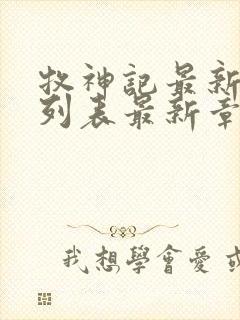 牧神記最新
列表最新章
我想學會愛或